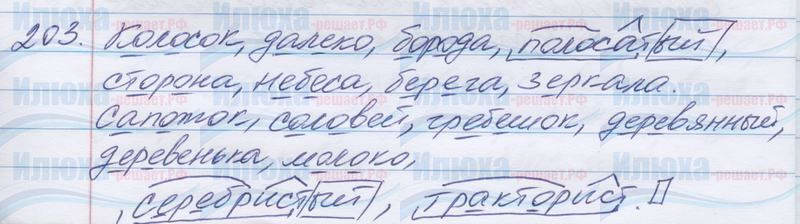 203. Колосок, далеко, борода, полосатый,
сторона, небеса, берега, зеркала.
Сапожок, соловей, гребешок, деревянный,
деревенька, молоко,
, серебристый, тракторист.